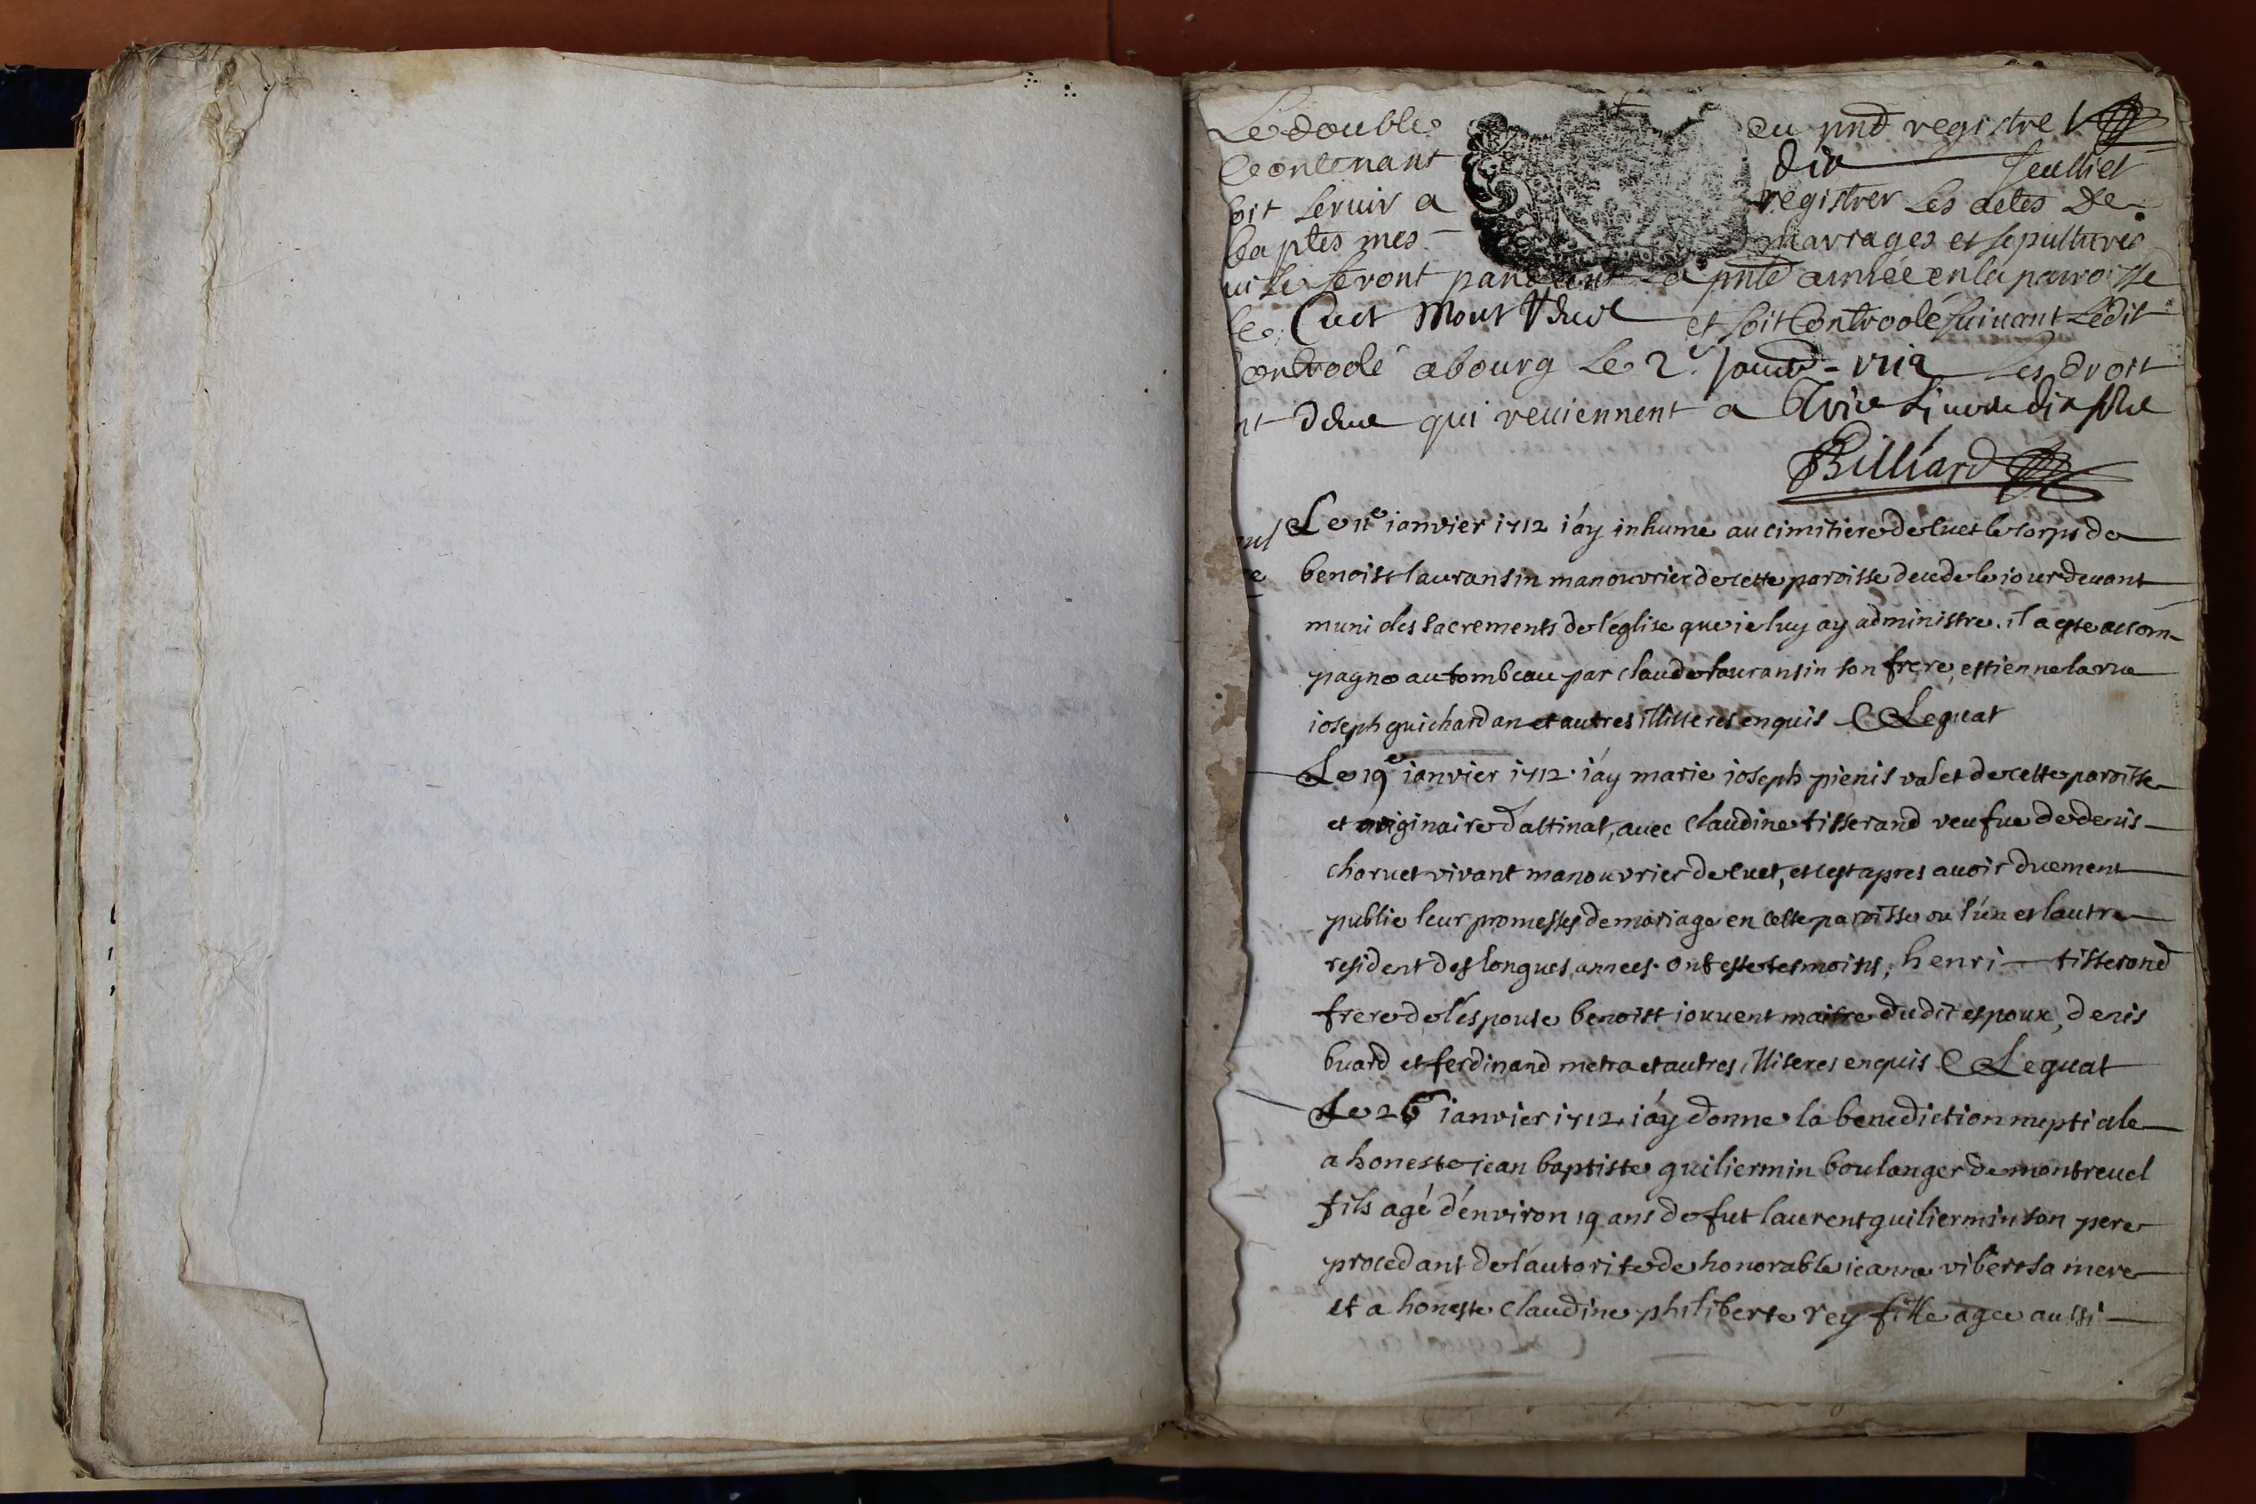 Le double du pnd registre
Contenant dix feulliet
soit servir a registrer Les actes De
baptes mes mariages et sepultures
ui se feront pandant La pnte année en la parroisse
de Cuet Mont et soit Controolé suivant Ledit
Controolé a bourg Le 2e Les droit
nt qui reviennent a
Billiard
Le 11e ianvier 1712 i'ay inhume au cimitiere de Cuet le corps de
benoist lauransin manouvrier de cette paroisse decede le iour devant
muni des sacrements de l'église que ie luy ay administre. il a este accom-
pagne au tombeau par claude lauransin son frere, estienne larue
ioseph guichardan et autres illiteres enquis C Leguat
Le 19e ianvier 1712. i'ay marie ioseph pienis valet de cette paroisse
et originaire d'attinat, avec Claudine tisserand veufue de denis
charvet vivant manouvrier de Cuet, et c'est apres avoir duement
publie leur promesses de mariage en cette paroisse ou l'un et lautre
resident des longues annees. ont este tesmoins, henri tisserand
frere de l'espouse benoist iouvent maitre dudit espoux, denis
buard et ferdinand metra et autres illiteres enquis C Leguat
Le 26e ianvier 1712. i'ay donne la benediction nuptiale
a honeste jean baptiste guiliermin boulanger de montrevel
fils agé d'environ 19 ans de fut laurent guiliermin son pere
procedant de l'autorite de honorable ieanne vibert sa mere
et a honeste Claudine philiberte rey fille agee aussi